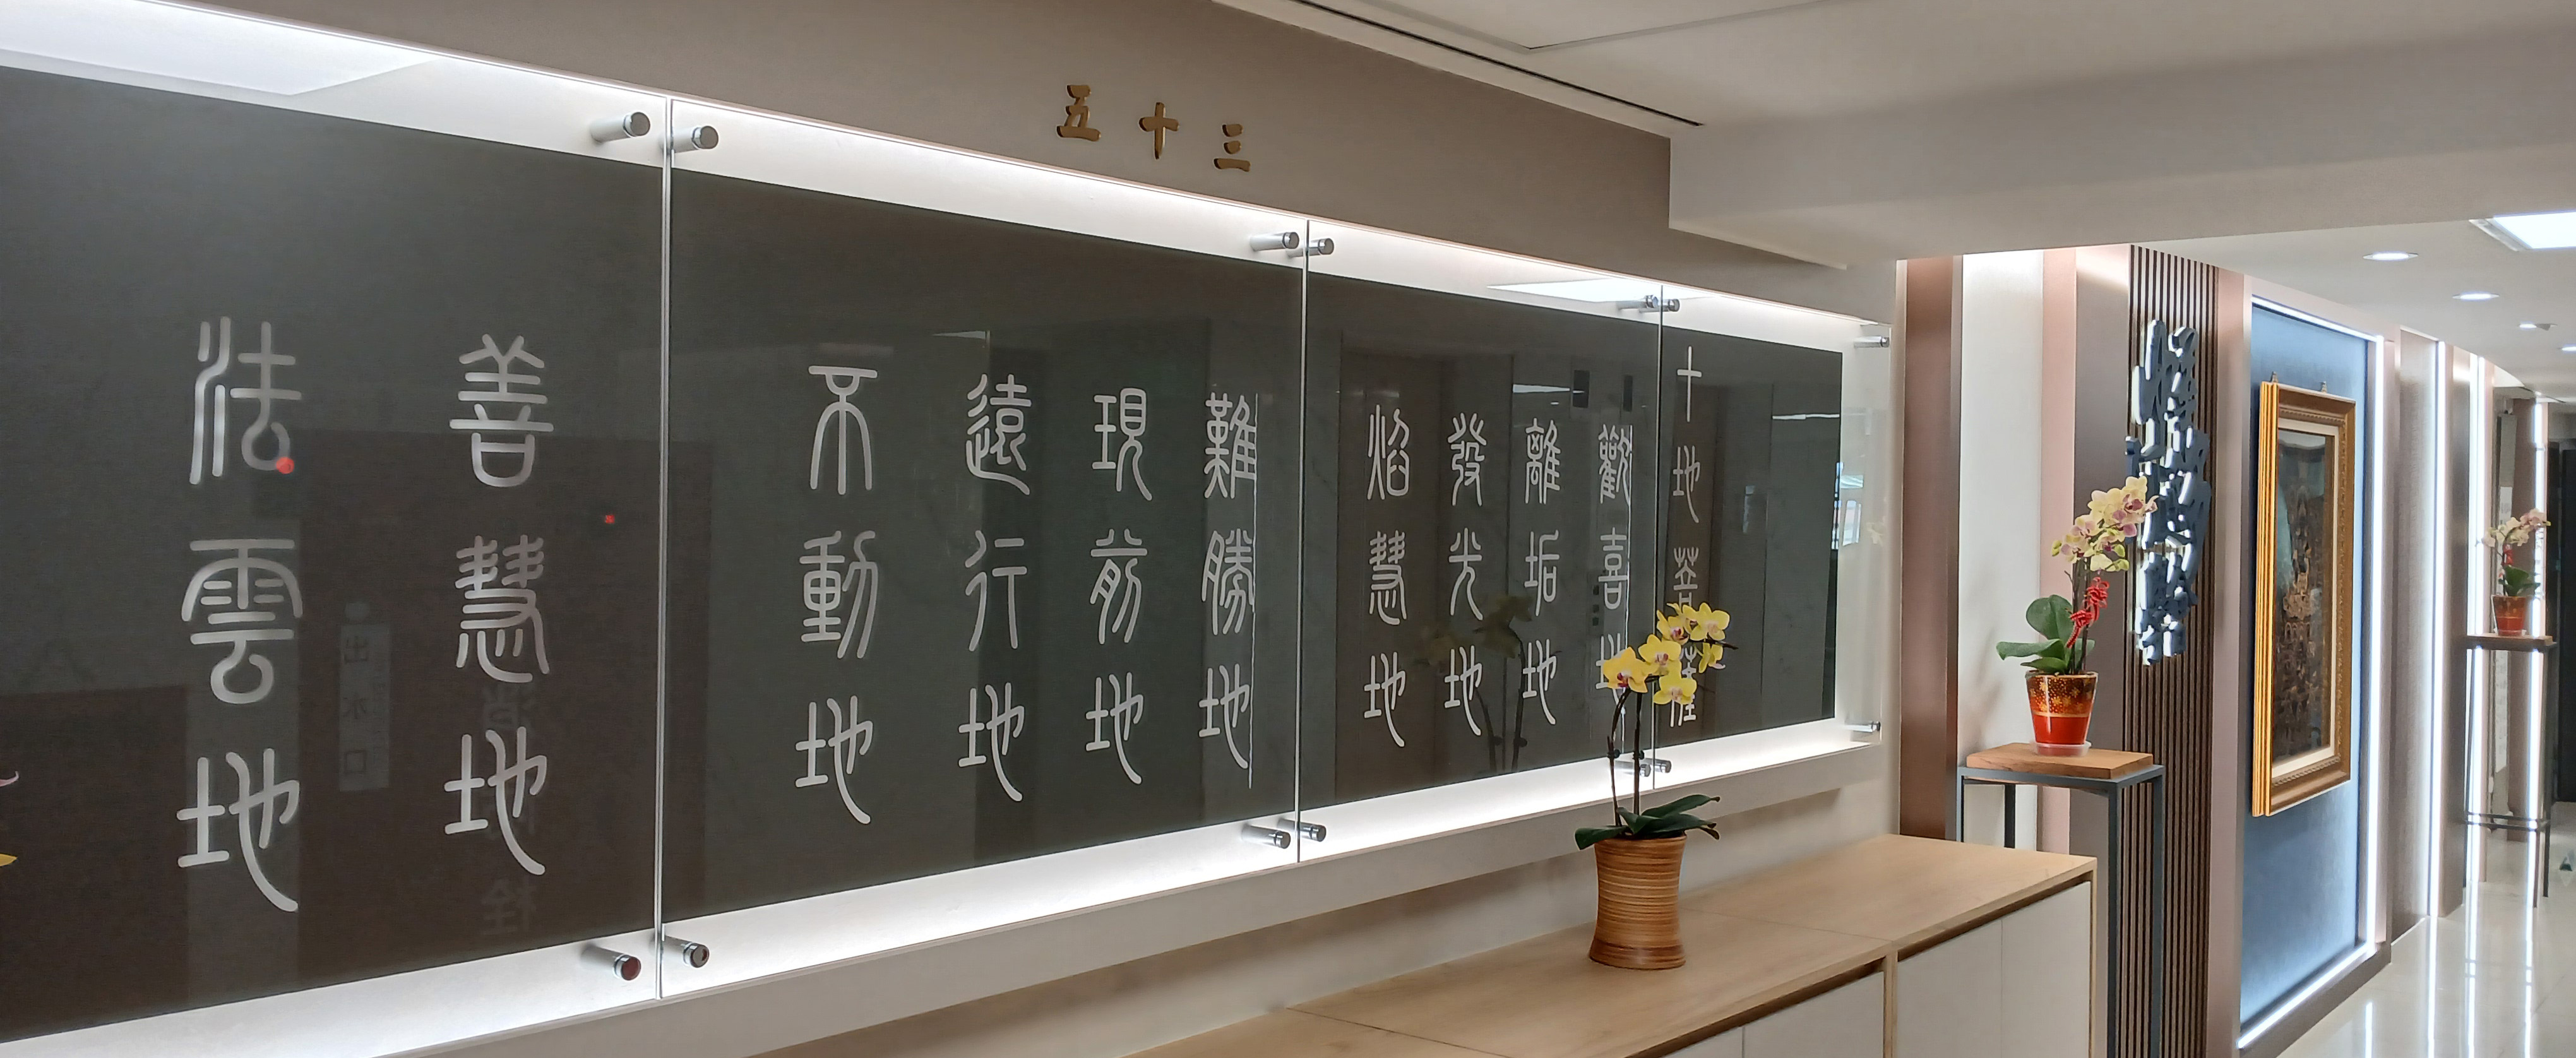 五十三
十地菩薩
歡喜地
離垢地
發光地
焰慧地
難勝地
現前地
遠行地
不動地
善慧地
法雲地
出水口